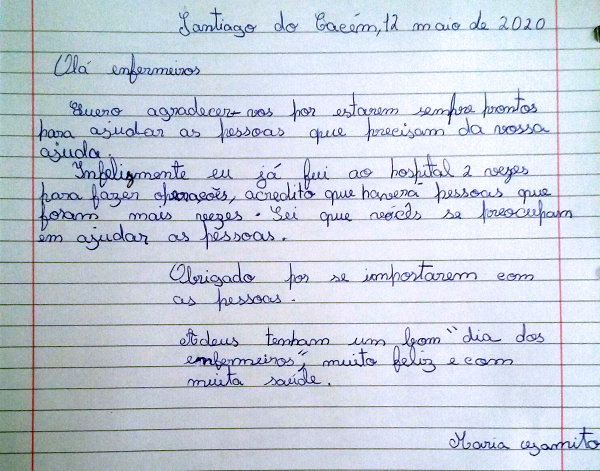 Santiago do Cacém, 12 maio de 2020
Olá enfermeiros
Quero agradecer-vos por estarem sempre prontos
para ajudar as pessoas que precisam da vossa
ajuda.
Infelizmente eu já fui ao hospital 2 vezes
para fazer operações, acredito que haverá pessoas que
foram mais vezes. Sei que vocês se preocupam
em ajudar as pessoas.
Obrigado por se importarem com
as pessoas.
Adeus tenham um bom "dia dos
enfermeiros", muito feliz e com
muita saúde.
Maria